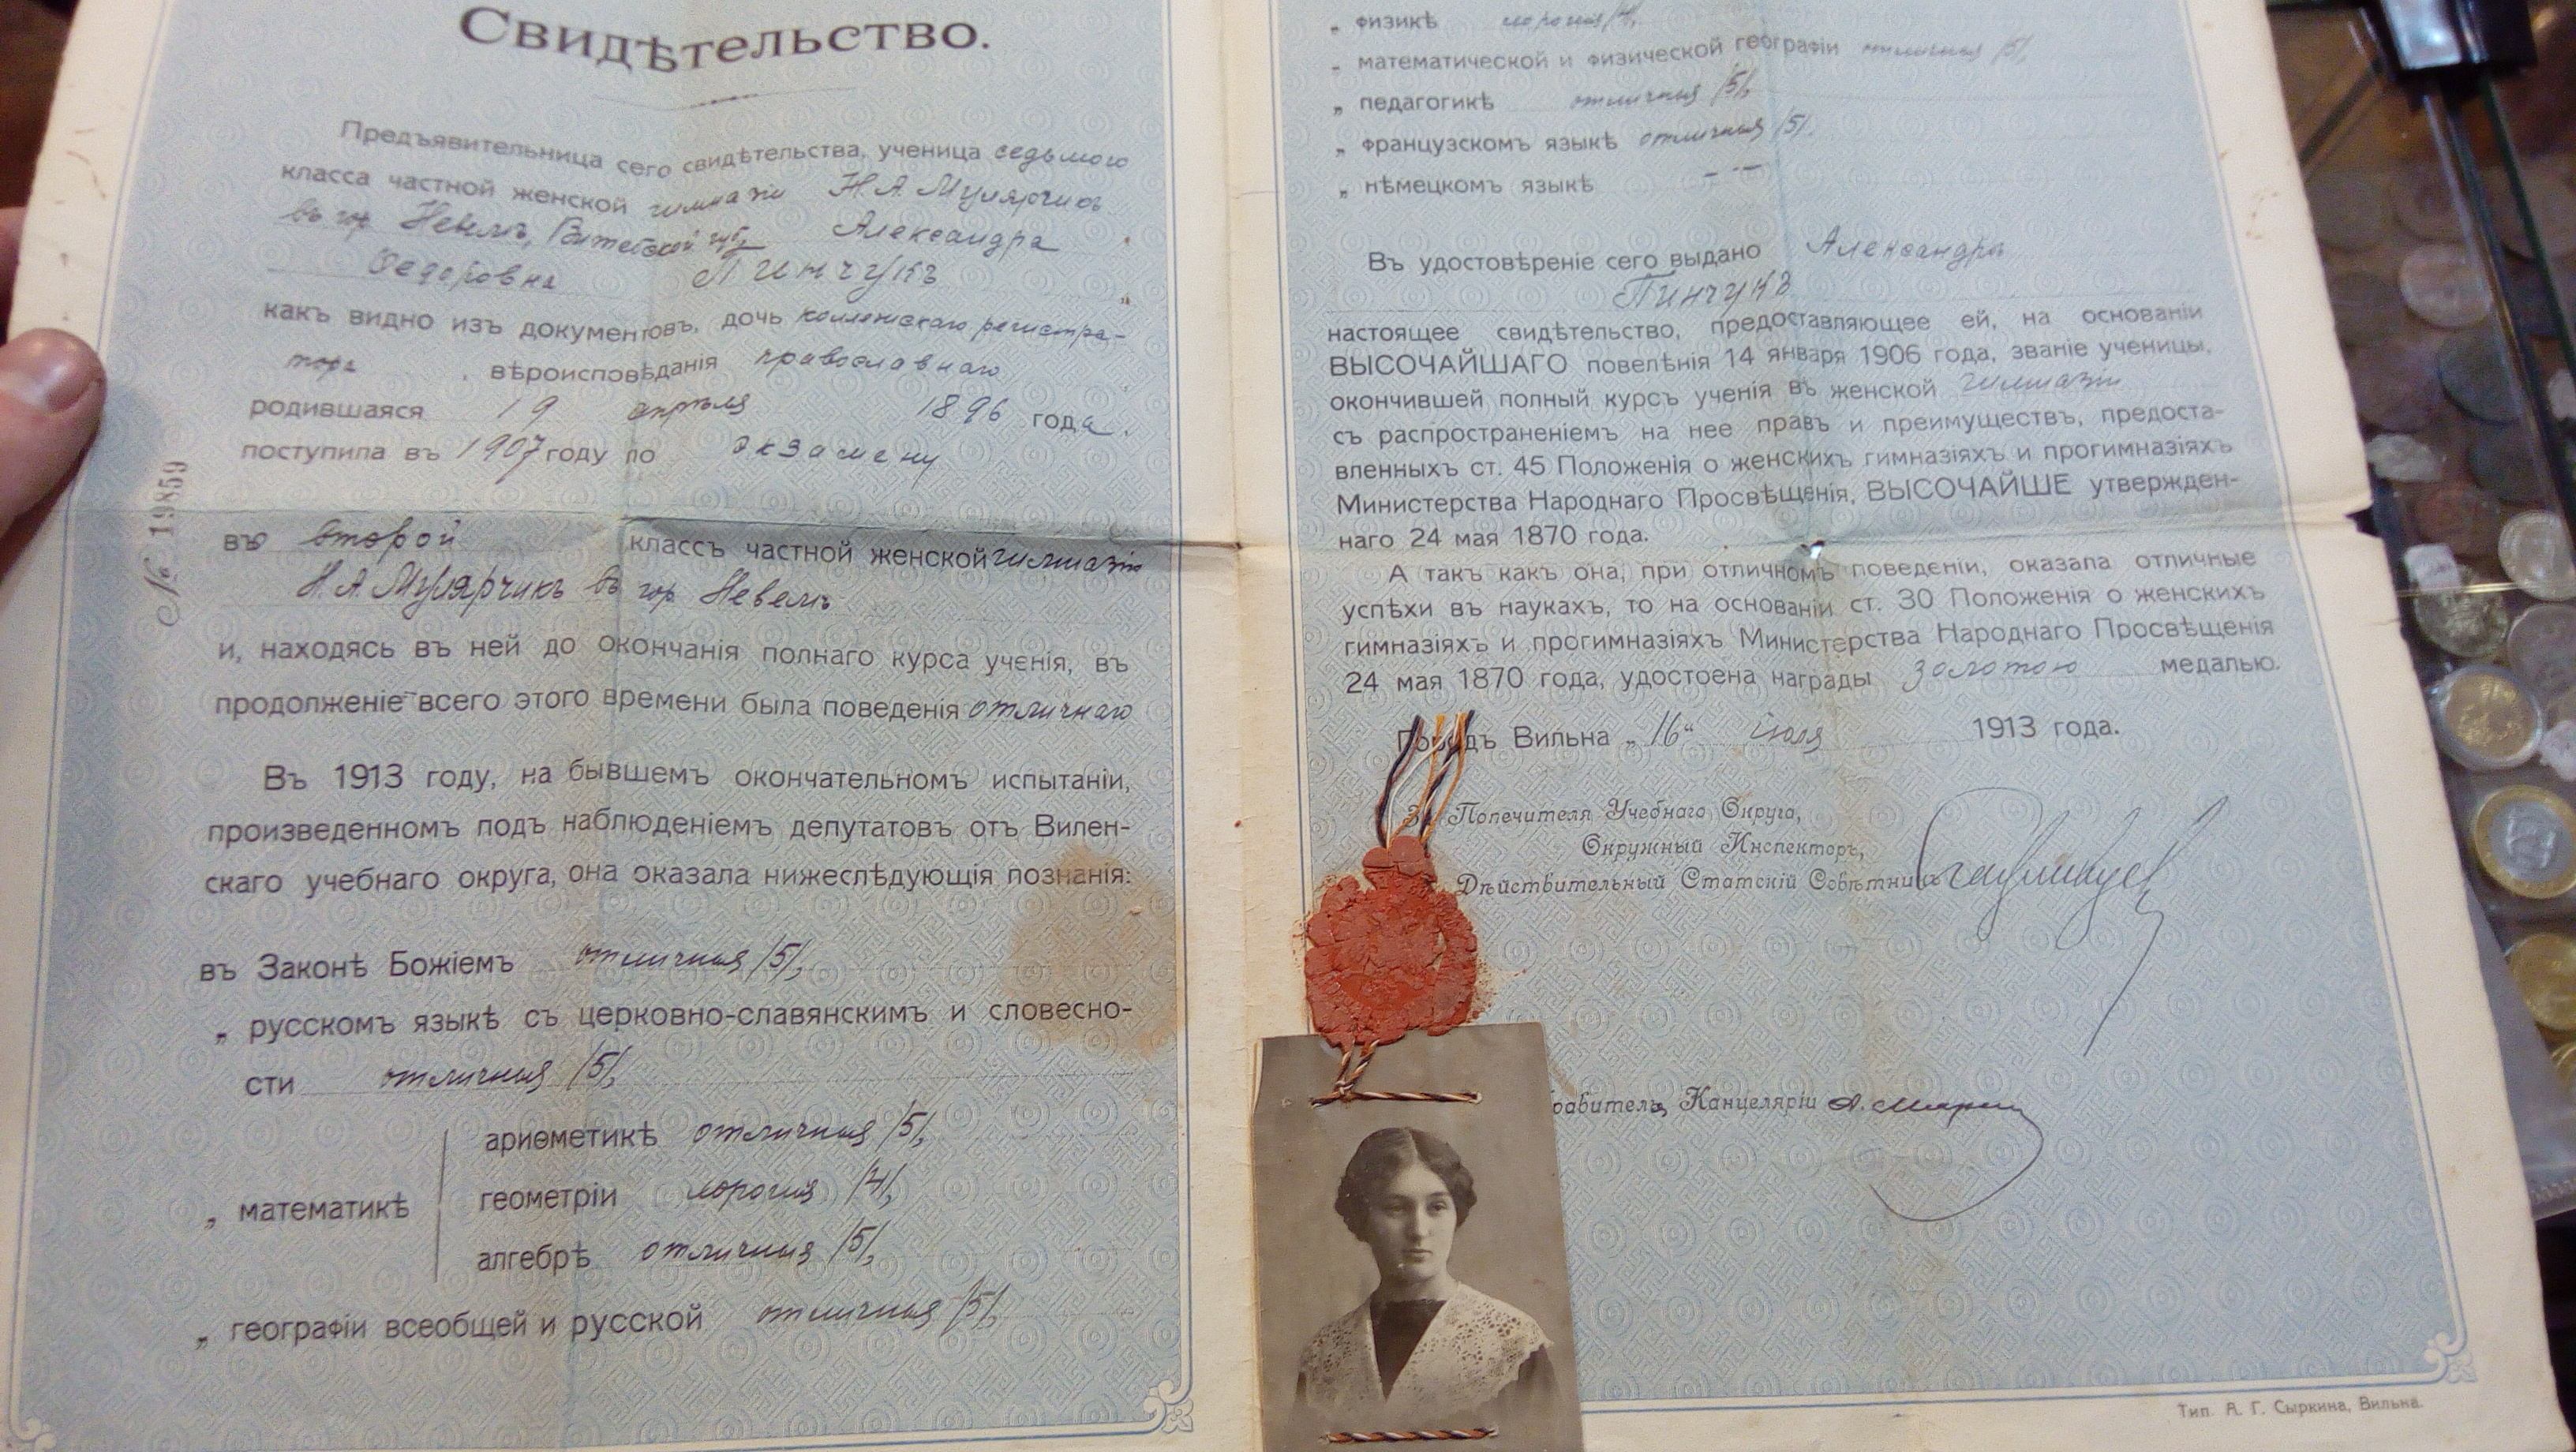 Свидѣтельство.
Предъявительница сего свидѣтельства, ученица седьмого
класса частной женской гимназіи Н. А. Мулярчикъ
въ гор Невелѣ, Витебской губ. Александра
Федоровна Пинчукъ
какъ видно изъ документовъ, дочь коллежскаго регистра-
тора, вѣроисповѣданія православнаго
родившаяся 19 апрѣля 1896 года.
поступила въ 1907 году по экзамену
№ 19859
въ второй классъ частной женской гимназіи
Н. А. Мулярчикъ въ гор Невелѣ
и, находясь въ ней до окончанія полнаго курса ученія, въ
продолженіе всего этого времени была поведенія отличнаго
Въ 1913 году, на бывшемъ окончательномъ испытаніи,
произведенномъ подъ наблюденіемъ депутатовъ отъ Вилен-
скаго учебнаго округа, она оказала нижеслѣдующія познанія:
въ Законѣ Божіемъ отличныя /5/,
„ русскомъ языкѣ съ церковно-славянскимъ и словесно-
сти отличныя /5/,
ариѳметикѣ отличныя /5/,
„ математикѣ
геометріи хорошія /4/,
алгебрѣ отличныя /5/,
„ географіи всеобщей и русской отличныя /5/,
„ физикѣ хорошія /4/,
„ математической и физической географіи отличныя /5/,
„ педагогикѣ отличныя /5/,
„ французскомъ языкѣ отличныя /5/.
„ нѣмецкомъ языкѣ — —
Въ удостовѣреніе сего выдано Александрѣ
Пинчукъ
настоящее свидѣтельство, предоставляющее ей, на основаніи
ВЫСОЧАЙШАГО повелѣнія 14 января 1906 года, званіе ученицы,
окончившей полный курсъ ученія въ женской гимназіи
съ распространеніемъ на нее правъ и преимуществъ, предоста-
вленныхъ ст. 45 Положенія о женскихъ гимназіяхъ и прогимназіяхъ
Министерства Народнаго Просвѣщенія, ВЫСОЧАЙШЕ утвержден-
наго 24 мая 1870 года.
А такъ какъ она, при отличномъ поведеніи, оказала отличные
успѣхи въ наукахъ, то на основаніи ст. 30 Положенія о женскихъ
гимназіяхъ и прогимназіяхъ Министерства Народнаго Просвѣщенія
24 мая 1870 года, удостоена награды золотою медалью.
Городъ Вильна „16“ іюля 1913 года.
За Попечителя Учебнаго Округа,
Окружный Инспекторъ,
Дѣйствительный Статскій Совѣтникъ
Правитель Канцеляріи
Тип. А. Г. Сыркина, Вильна.